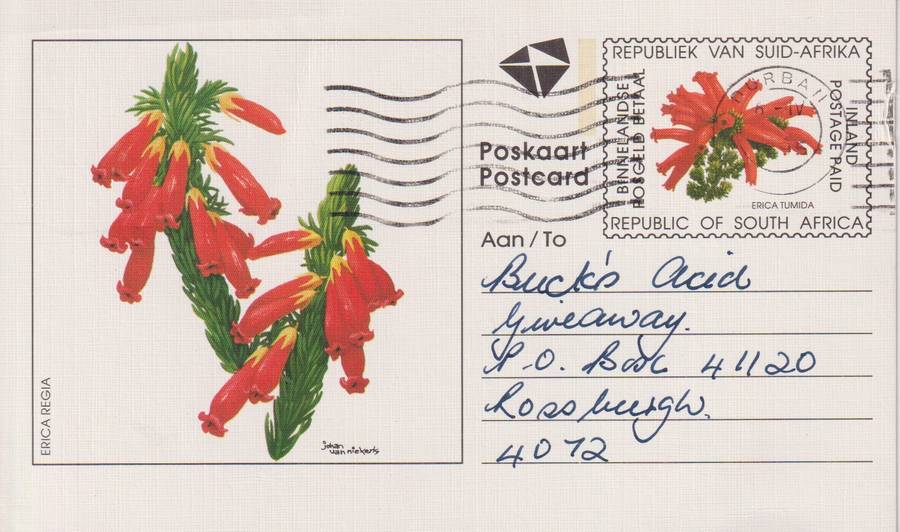 ERICA REGIA
johan
van niekerk
Poskaart
Postcard
REPUBLIEK VAN SUID-AFRIKA
BINNELANDSE
POSGELD BETAAL
DURBAN
INLAND
POSTAGE PAID
ERICA TUMIDA
REPUBLIC OF SOUTH AFRICA
Aan / To
Buck's Acid
Giveaway.
P.O. Box 41120
Rossburgh.
4072